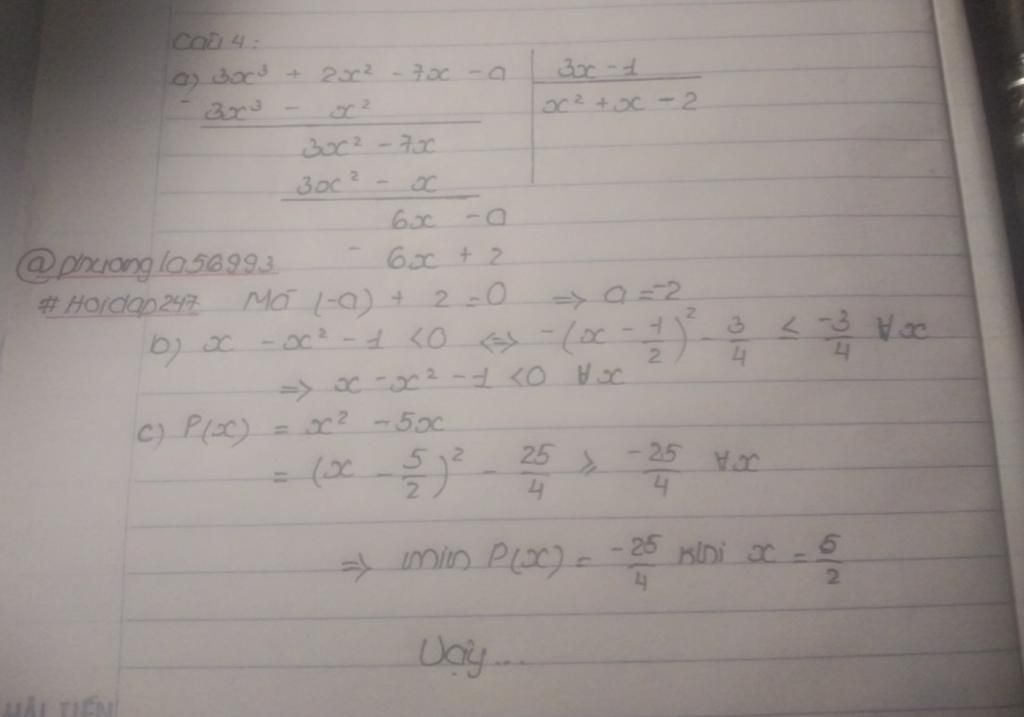 Câu 4:
a) 3x³ + 2x² - 7x - a | 3x - 1
- 3x³ - x² | x² + x - 2
3x² - 7x
3x² - x
6x - a
- 6x + 2
@phuongla56993
#Hoidap247 Mà (-a) + 2 = 0 ⇒ a = -2
b) x - x² - 1 < 0 ⇔ -(x - 1/2)² - 3/4 ≤ -3/4 ∀x
⇒ x - x² - 1 < 0 ∀x
c) P(x) = x² - 5x
= (x - 5/2)² - 25/4 ≥ -25/4 ∀x
⇒ min P(x) = -25/4 khi x = 5/2
Vậy...
HẢI TIẾN